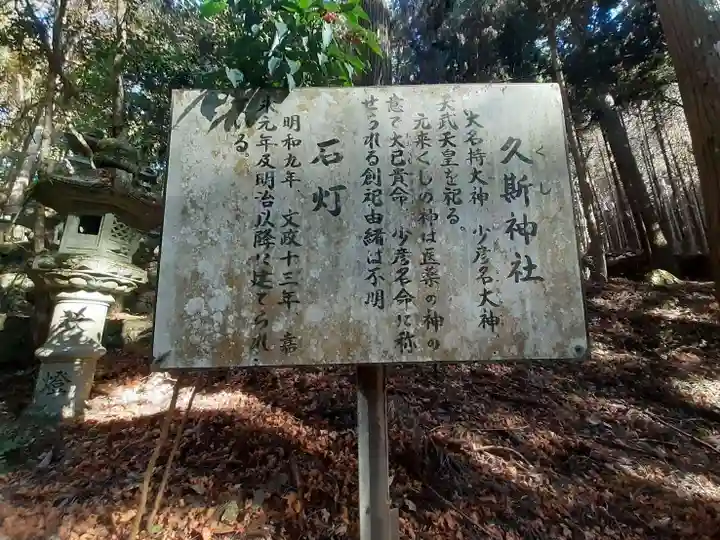 久斯神社
くし
大名持大神 少彦名大神
天武天皇を祀る。
元来くしの神は医薬の神の
意で大己貴命 少彦名命に称
せられる創祀由緒は不明
石灯
明和九年 文政十三年 嘉
永元年及明治以降に建てられ
いる。
燈